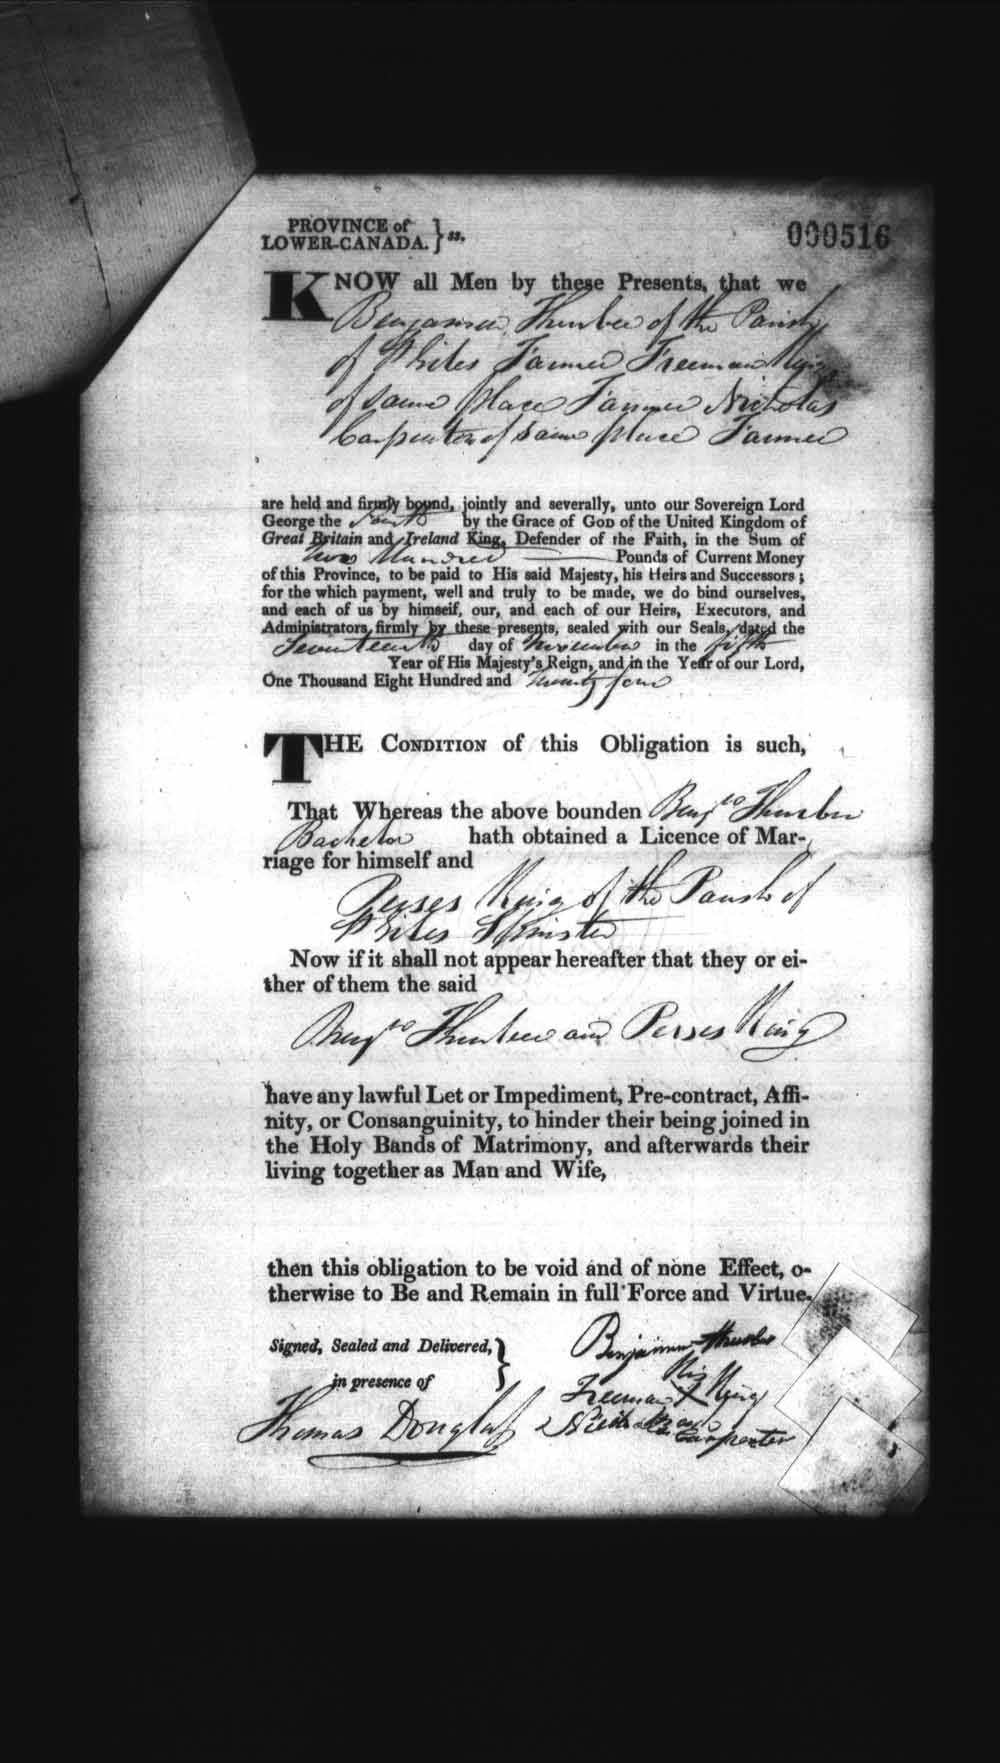 PROVINCE of
LOWER-CANADA. } ss.
000516
KNOW all Men by these Presents, that we
Benjamin Thurber of the Parish
of St Giles Farmer Freeman King
of same place Farmer Nicholas
Carpenter of same place Farmer
are held and firmly bound, jointly and severally, unto our Sovereign Lord
George the Fourth by the Grace of GOD of the United Kingdom of
Great Britain and Ireland King, Defender of the Faith, in the Sum of
Two Hundred Pounds of Current Money
of this Province, to be paid to His said Majesty, his Heirs and Successors;
for the which payment, well and truly to be made, we do bind ourselves,
and each of us by himself, our, and each of our Heirs, Executors, and
Administrators, firmly by these presents, sealed with our Seals, dated the
Seventeenth day of November in the fifth
Year of His Majesty's Reign, and in the Year of our Lord,
One Thousand Eight Hundred and twenty four
THE CONDITION of this Obligation is such,
That Whereas the above bounden Benjn Thurber
Bachelor hath obtained a Licence of Mar-
riage for himself and
Perses King of the Parish of
St Giles Spinster
Now if it shall not appear hereafter that they or ei-
ther of them the said
Benjn Thurber and Perses King
have any lawful Let or Impediment, Pre-contract, Affi-
nity, or Consanguinity, to hinder their being joined in
the Holy Bands of Matrimony, and afterwards their
living together as Man and Wife,
then this obligation to be void and of none Effect, o-
therwise to Be and Remain in full Force and Virtue.
Signed, Sealed and Delivered, }
in presence of
Thomas Douglass
Benjamin Thurber
his
Freeman X King
mark
Nicholas Carpenter